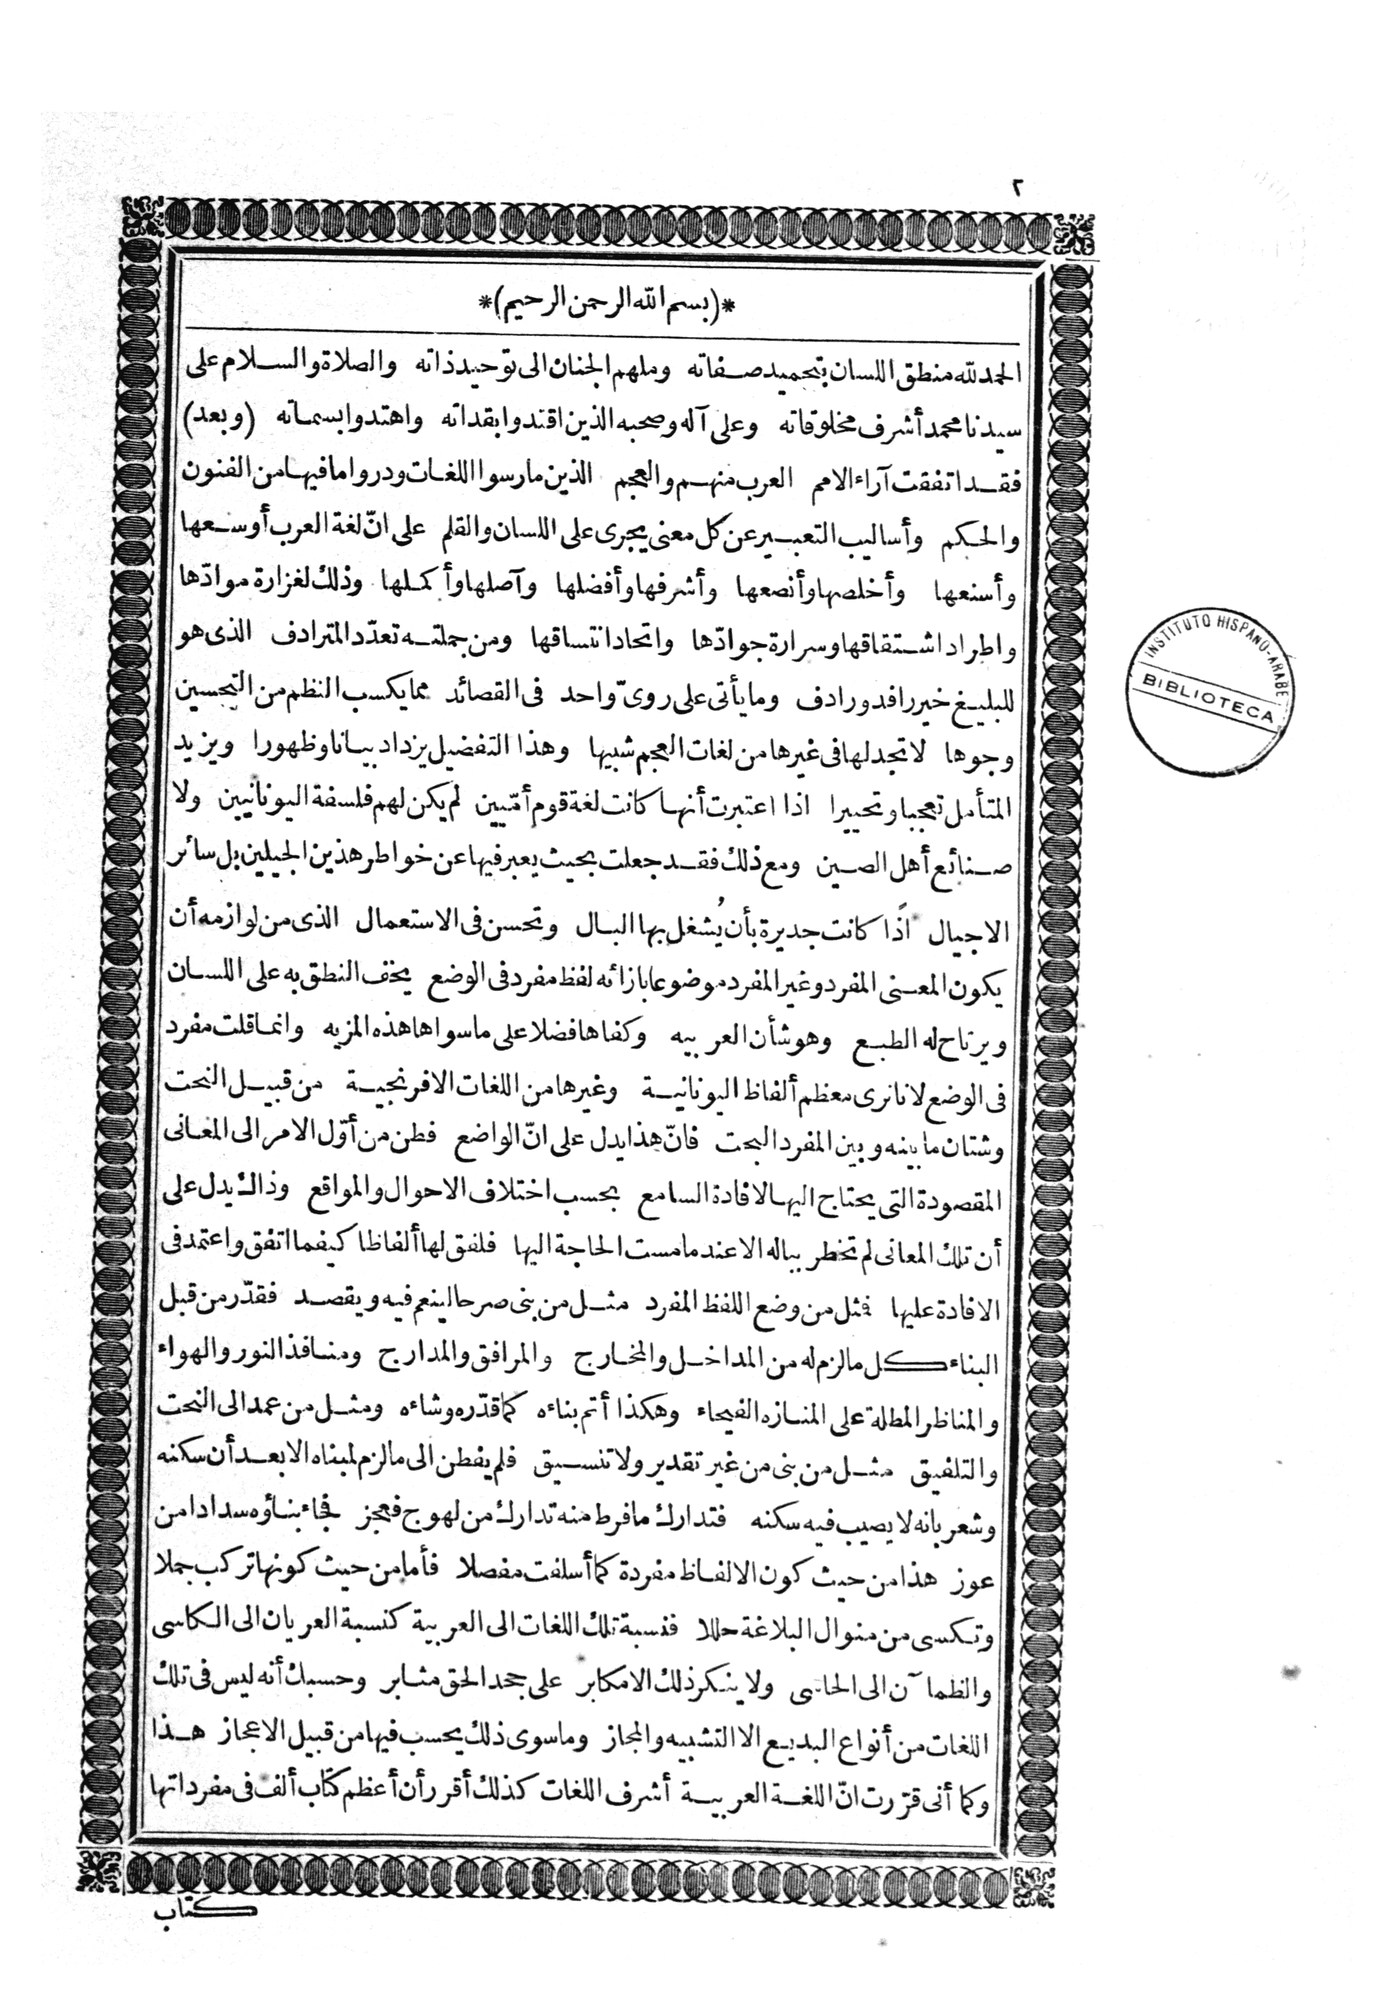 ٢
*(بسم الله الرحمن الرحيم)*
الحمد لله منطق اللسان بتحميد صفاته وملهم الجنان الى توحيد ذاته والصلاة والسلام على
سيدنا محمد أشرف مخلوقاته وعلى آله وصحبه الذين اقتدوا بقداته واهتدوا بسماته (وبعد)
فقد اتفقت آراء الامم العرب منهم والعجم الذين مارسوا اللغات ودروا ما فيها من الفنون
والحكم وأساليب التعبير عن كل معنى يجرى على اللسان والقلم على انّ لغة العرب أوسعها
وأسنعها وأخلصها وأنصعها وأشرفها وأفضلها وآصلها وأكملها وذلك لغزارة موادّها
واطراد اشتقاقها وسرارة جوادّها واتحاد انتساقها ومن جملته تعدّد المترادف الذى هو
للبليغ خير رافد ورادف وما يأتى على روىّ واحد فى القصائد مما يكسب النظم من التحسين
وجوها لا تجد لها فى غيرها من لغات العجم شبيها وهذا التفضيل يزداد بيانا وظهورا ويزيد
المتأمل تعجبا وتحييرا اذا اعتبرت أنها كانت لغة قوم أمّيين لم يكن لهم فلسفة اليونانيين ولا
صنائع أهل الصين ومع ذلك فقد جعلت بحيث يعبر فيها عن خواطر هذين الجيلين بل سائر
الاجيال اذًا كانت جديرة بأن يُشغل بها البال وتحسن فى الاستعمال الذى من لوازمه أن
يكون المعنى المفرد وغير المفرد موضوعا بازائه لفظ مفرد فى الوضع يخف النطق به على اللسان
ويرتاح له الطبع وهو شأن العربيه وكفاها فضلا على ما سواها هذه المزيه وانما قلت مفرد
فى الوضع لانا نرى معظم ألفاظ اليونانية وغيرها من اللغات الافرنجية من قبيل النحت
وشتان ما بينه وبين المفرد البحت فانّ هذا يدل على انّ الواضع فطن من أوّل الامر الى المعانى
المقصودة التى يحتاج اليها لافادة السامع بحسب اختلاف الاحوال والمواقع وذاك يدل على
أن تلك المعانى لم تخطر بباله الا عند ما مست الحاجة اليها فلفق لها ألفاظا كيفما اتفق واعتمد فى
الافادة عليها فمثل من وضع اللفظ المفرد مثل من بنى صرحا لينعم فيه ويقصد فقدّر من قبل
البناء كل ما لزم له من المداخل والمخارج والمرافق والمدارج ومنافذ النور والهواء
والمناظر المطلة على المنازه الفيحاء وهكذا أتم بناءه كما قدّره وشاءه ومثل من عمد الى النحت
والتلفيق مثل من بنى من غير تقدير ولا تنسيق فلم يفطن الى ما لزم لمبناه الا بعد أن سكنه
وشعر بانه لا يصيب فيه سكنه فتدارك ما فرط منه تدارك من لهوج فعجز فجاء بناؤه سدادا من
عوز هذا من حيث كون الالفاظ مفردة كما أسلفت مفصلا فأما من حيث كونها تركب جملا
وتكسى من منوال البلاغة حللا فنسبة تلك اللغات الى العربية كنسبة العريان الى الكاسى
والظمآن الى الحاسى ولا ينكر ذلك الا مكابر على جحد الحق مثابر وحسبك أنه ليس فى تلك
اللغات من أنواع البديع الا التشبيه والمجاز وما سوى ذلك يحسب فيها من قبيل الاعجاز هذا
وكما أنى قرّرت انّ اللغة العربية أشرف اللغات كذلك أقرر أن أعظم كتاب ألف فى مفرداتها
كتاب
INSTITUTO HISPANO-ARABE
BIBLIOTECA